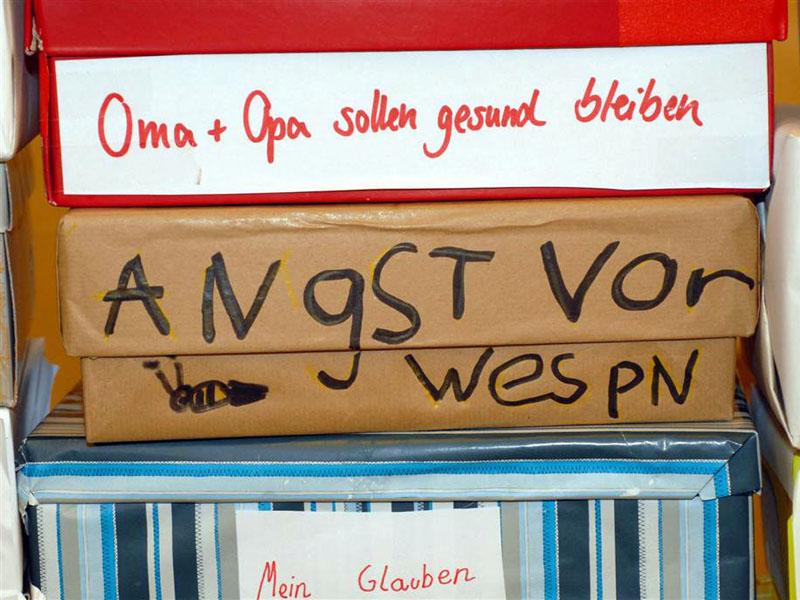 Oma + Opa sollen gesund bleiben
ANgST Vor
WespN
Mein Glauben